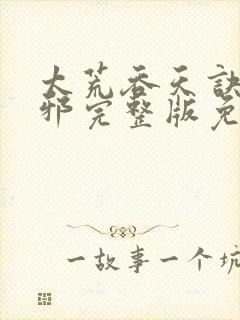 大荒吞天诀
邪完整版免
一故事一个坑